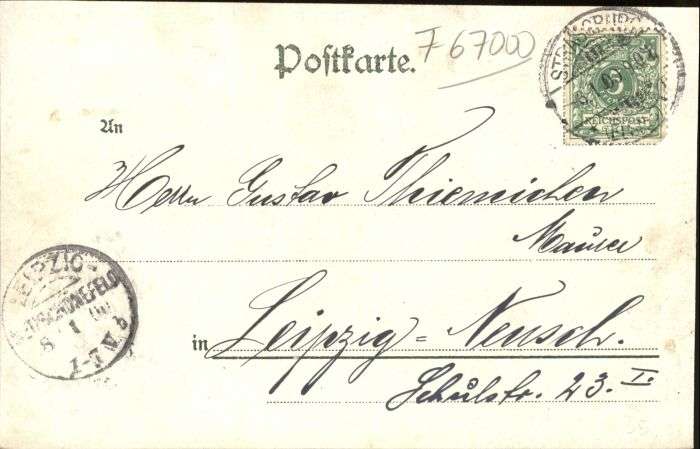 Postkarte.
7 67000
REICHSPOST
An
Herrn Gustav Thiemichen
Maurer
in Leipzig-Neusch.
Schulstr. 23. I.
LEIPZIG-
NEUSCHÖNEFELD
8 1 00
1-2 N